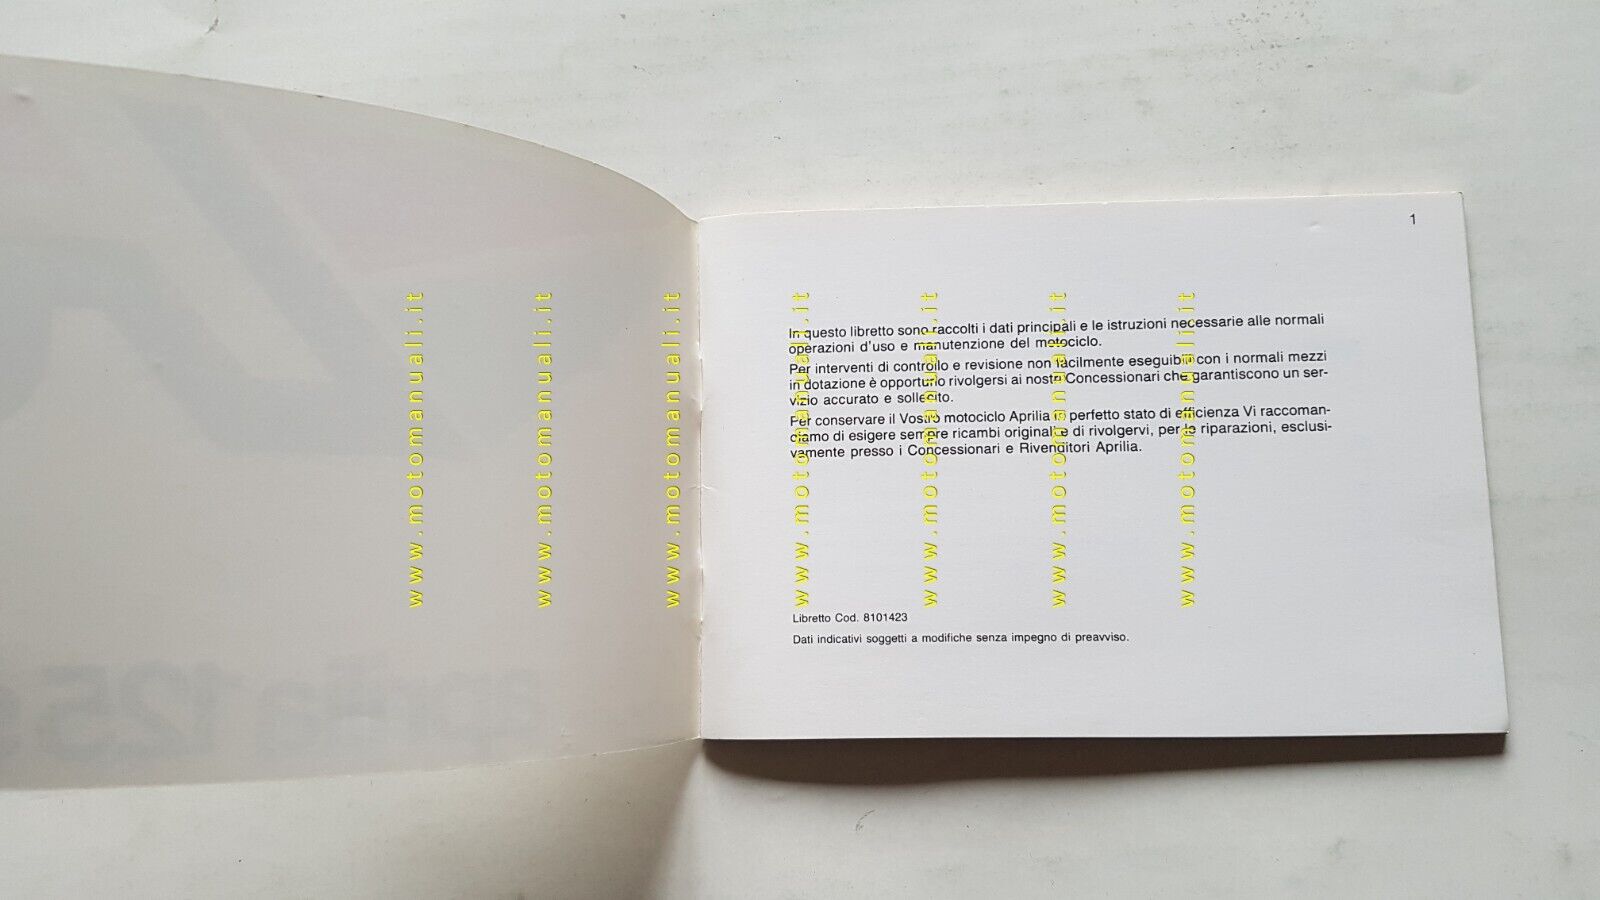 1
In questo libretto sono raccolti i dati principali e le istruzioni necessarie alle normali
operazioni d'uso e manutenzione del motociclo.
Per interventi di controllo e revisione non facilmente eseguibili con i normali mezzi
in dotazione è opportuno rivolgersi ai nostri Concessionari che garantiscono un ser-
vizio accurato e sollecito.
Per conservare il Vostro motociclo Aprilia in perfetto stato di efficienza Vi raccoman-
diamo di esigere sempre ricambi originali e di rivolgervi, per le riparazioni, esclusi-
vamente presso i Concessionari e Rivenditori Aprilia.
Libretto Cod. 8101423
Dati indicativi soggetti a modifiche senza impegno di preavviso.
aprilia 125
www.motomanuali.it
www.motomanuali.it
www.motomanuali.it
www.motomanuali.it
www.motomanuali.it
www.motomanuali.it
www.motomanuali.it